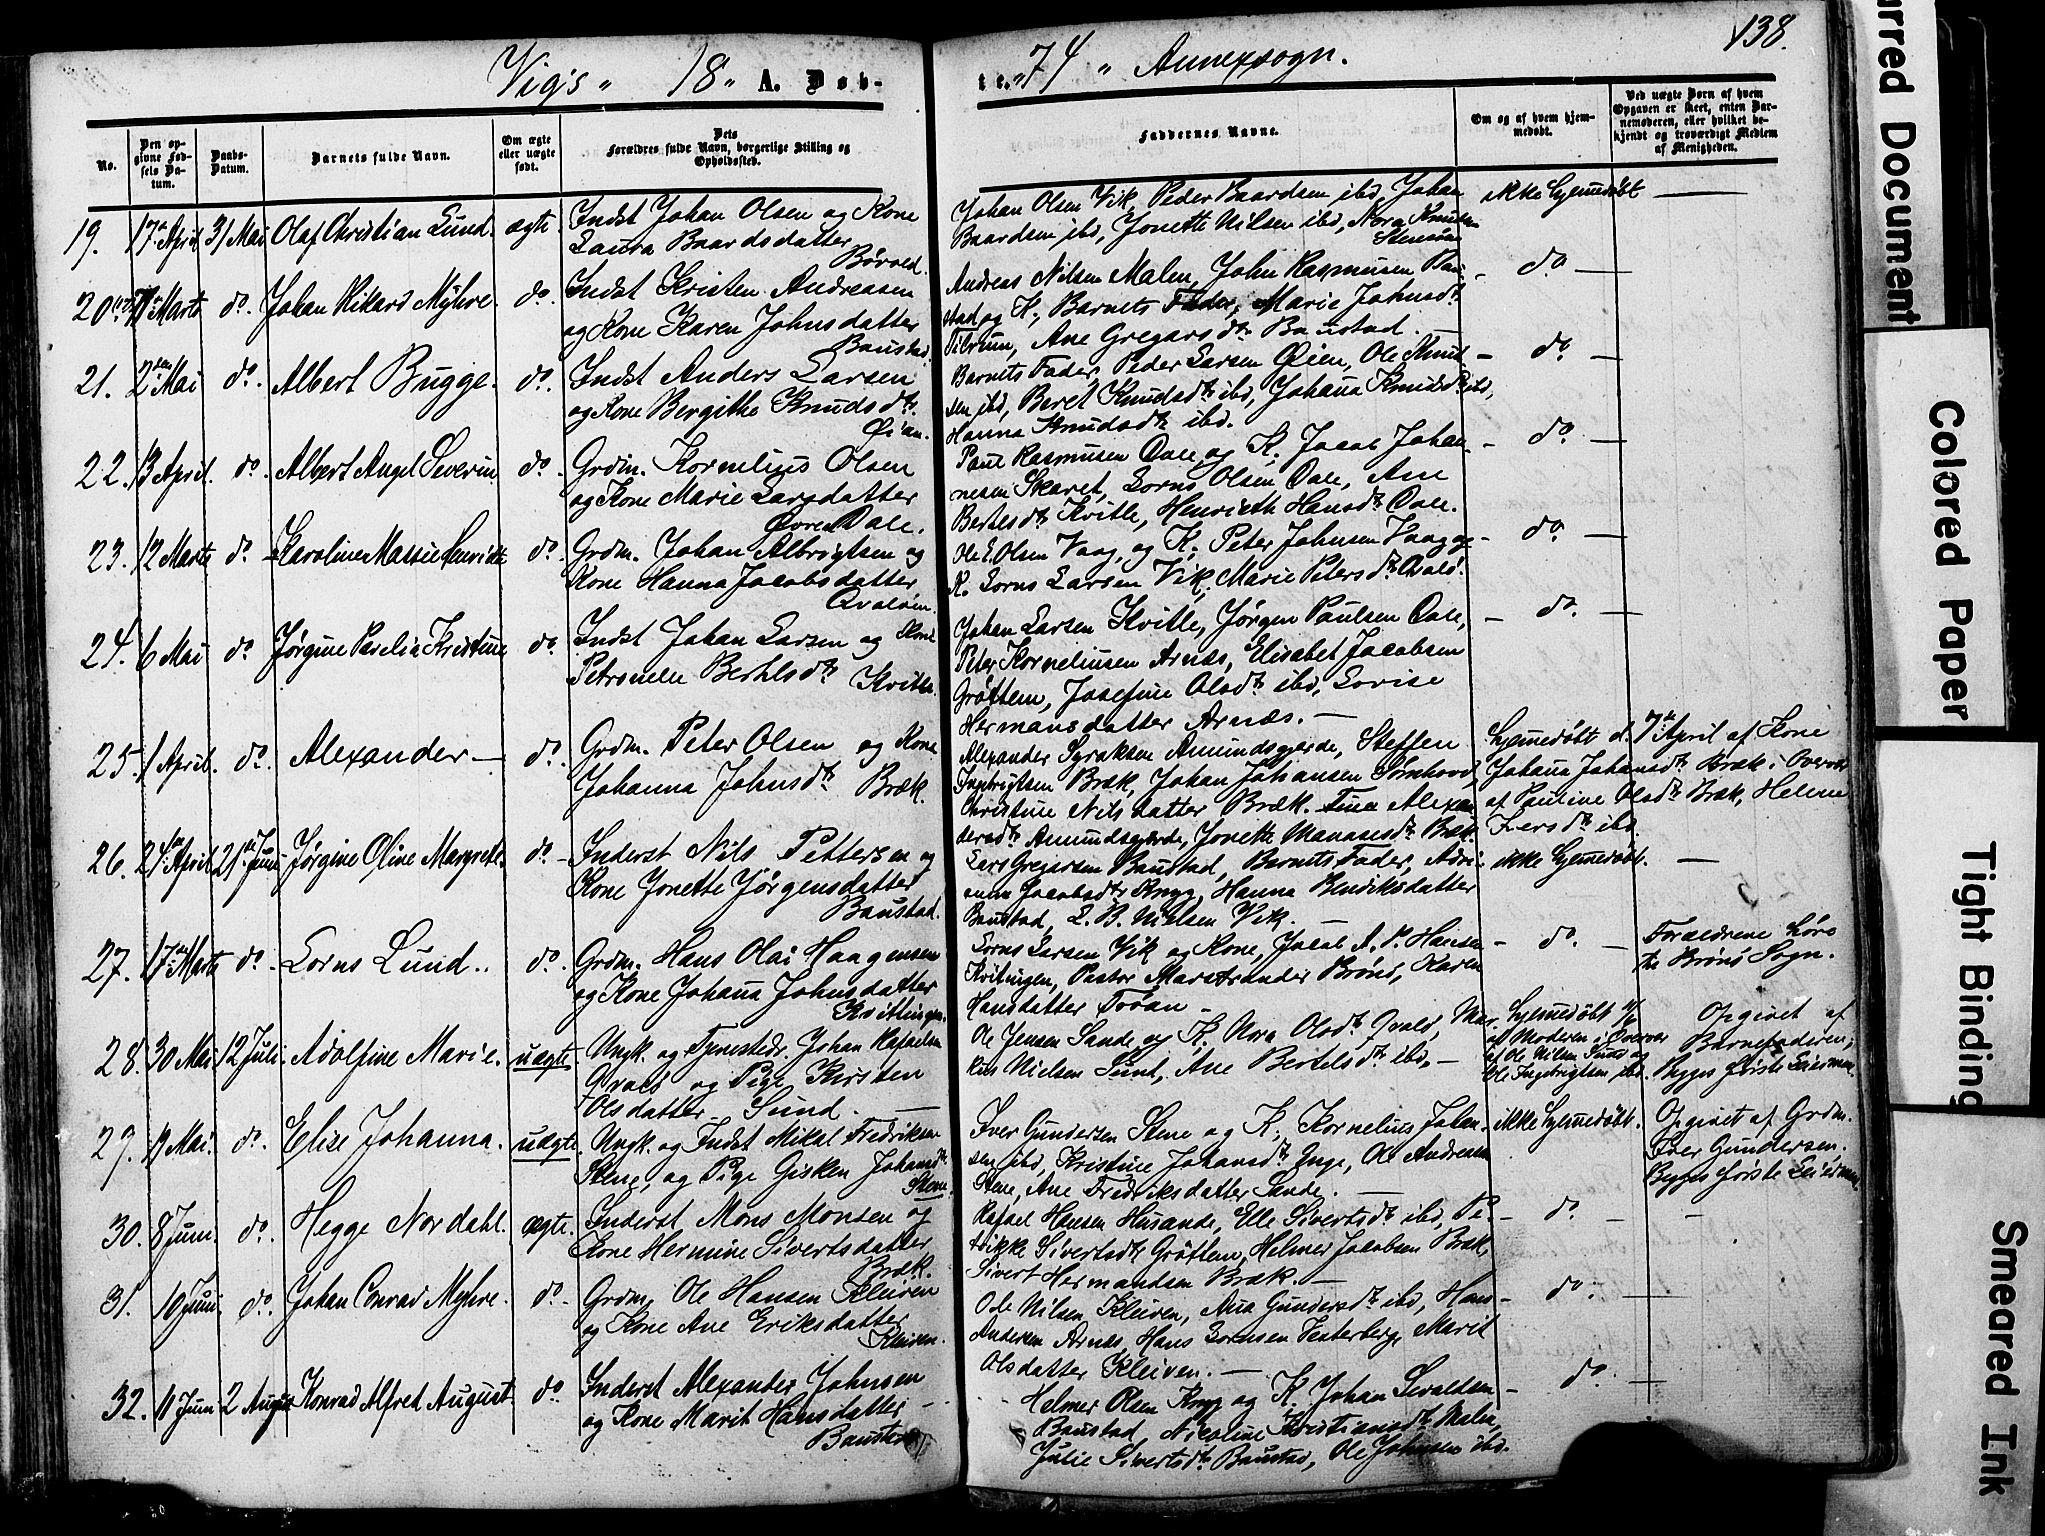 Vigs „ 18 „ A. Døb-
te. „ 74 „ Annexsogn.
138.
No.
Den opgivne Fødsels Datum.
Daabs-Datum.
Barnets fulde Navn.
Om ægte eller uægte født.
Dets Forældres fulde Navn, borgerlige Stilling og Opholdssted.
Faddernes Navne.
Om og af hvem hjemmedøbt.
Ved uægte Børn af hvem Opgaven er skeet, enten Barnemoderen, eller hvilket bekjendt og troværdigt Medlem af Menigheden.
19. 17de April 31 Mai Olaf Christian Lund. ægte
Indst Johan Olsen og Kone
Laura Baardsdatter
Bøvold.
Johan Olsen Vik, Peder Baardsen ibd, Johan
Baardsen ibd, Jonette Nilsen ibd, Nora Knutsen
Stensøen
ikke hjemedøbt —
20. Marts do. Johan Rikard Myhre. do.
Indst Kristen Andreasen
og Kone Karen Johnsdatter
Baustad.
Andreas Nilsen Malen, John Rasmusen Bau-
stad og K., Barnets Fader, Marie Johnsdtr
Ane Gregarsdtr Baustad. —
- do. —
21. 2den Mai do. Albert Bugge. do.
Indst Anders Larsen
og Kone Bergithe Knudsdtr.
Øien.
Barnets Fader, Peder Larsen Øien, Ole Knud-
sen ibd, Beret Knudsdtr ibd, Johana Knudsdtr ibd,
Hanna Knudsdtr ibd.
- do. —
22. 13 April. do. Albert Angel Severin do.
Grdm. Kornelius Olsen
og Kone Marie Larsdatter
Øvre Dale.
Paul Rasmusen Dale og K, Jacob Johan-
nesen Skaret, Lorns Olsen Dale, Ane
Bertelsdtr Kvitle, Henrieth Hansdtr Dale.
- do. —
23. 12 Marts do. Karoline Massie Henridte do.
Grdm. Johan Albrigtsen og
Kone Hanna Jacobsdatter
Qvaløen.
Ole E. Olsen Vaag, og K, Peter Johnsen Vaag og
K. Lorns Larsen Vik, Marie Petersdtr Qvalø.
- do. —
24. 6 Mai do. Jørgine Parelia Kristine do.
Indst Johan Larsen og Kone
Petronele Bertelsdtr Kvitle.
Johan Larsen Kvitle, Jørgen Paulsen Dale,
Peter Korneliusen Arnæs, Elisabet Jacobsen
Grøttem, Josefine Olsdtr ibd, Lovise
Hermansdatter Arnæs. —
- do. —
25. 1 April. do. Alexander — do.
Grdm. Peter Olsen og Kone
Johanna Johnsdtr Bræk.
Alexander Syraksen Amundsgjerde, Steffen
Ingebrigtsen Bræk, Johan Johansen Sørnhoved,
Christine Nilsdatter Bræk. Tina Alexan-
dersdtr Amundsgjerde, Jonette Manasesdtr Bræk.
hjemedøbt d. 7de April af Kone
Johana Johansdtr Bræk i Overvær
af Pauline Olsdtr Bræk, Helene
Iversdtr ibd.
26. 24de April 21de Juni Jørgine Oline Margrete. do. —
Inderst Nils Pettersen og
Kone Jonette Jørgensdatter
Baustad.
Lars Gregersen Baustad, Barnets Fader, Adri-
ane Jacobsdtr Knyg, Hanna Benriksdatter
Baustad, L. B. Nielsen Vik. —
ikke hjemedøbt. —
27. 17de Marts do. Lorns Lund.. do.
Grdm. Hans Olai Haagensen
og Kone Johana Johnsdatter
Kvittingen.
Lorns Larsen Vik og Kone, Jacob A. P. Hansen
Kvitingen, Pastor Marstrander Brønø, Karen
Hansdatter Torøen —
- do. —
Forældrene høre
til Brønø Sogn.
28. 30 Mai 12 Juli. Adolfine Marie. uægte.
Ungk. og Tjenestedr. Johan Rafaelsen
Qvalø og Pige Kirsten
Olsdatter Sund. —
Ole Jensen Sande og K, Nora Olsdtr Qvalø, Mar-
kus Nielsen Sund, Ane Bertelsdtr ibd. —
hjemedøbt
af Moderen i Overvær
af Ole Nilsen Sund og
Ole Ingebrigtsen ibd.
Opgivet af
Barnefaderen;
Begges første Leiermaal.
29. 19 Mai. do. Elise Johanna. uægte.
Ungk. og Indst Mikal Fredriksen
Stene, og Pige Gisken Johansdtr
Stene.
Iver Gundersen Stene og K, Kornelius Johan-
sen ibd, Kristine Johansdtr Unge, Ole Andreasen
Stene, Ane Fredriksdatter Sande. —
ikke hjemedøbt.
Opgivet af Grdm.
Iver Gundersen.
Begges første Leiermaal.
30. 8 Juni. do. Hegge Nordahl. ægte.
Inderst Mons Monsen og
Kone Hermine Sivertsdatter
Bræk.
Rafael Hansen Husande, Elle Sivertsdtr ibd, Pe-
rikke Sivertsdtr Grøttem, Helmer Jacobsen Bræk,
Sivert Hermandsen Bræk. —
- do. —
31. 10 Juni do. Johan Conrad Myhre. do.
Grdm, Ole Hansen Kleiven
og Kone Ane Eriksdatter
Kleiven.
Ole Nilsen Kleiven, Ana Gundersdtr ibd, Hans
Andersen Arnæs, Hans Lornsen Vesterberg, Marit
Olsdatter Kleiven. —
- do. —
32. 11 Juni 2 August Konrad Alfred August. do.
Inderst Alexander Johnsen
og Kone Marit Hansdatter
Baustad
Helmer Olsen Knyg og K, Johan Sivaldsen
Baustad, Nicoline Kristiansdtr Malen,
Julie Sivertsdtr Baustad, Ole Johnsen ibd.
- do. —
arred Document
Colored Paper
Tight Binding
Smeared Ink